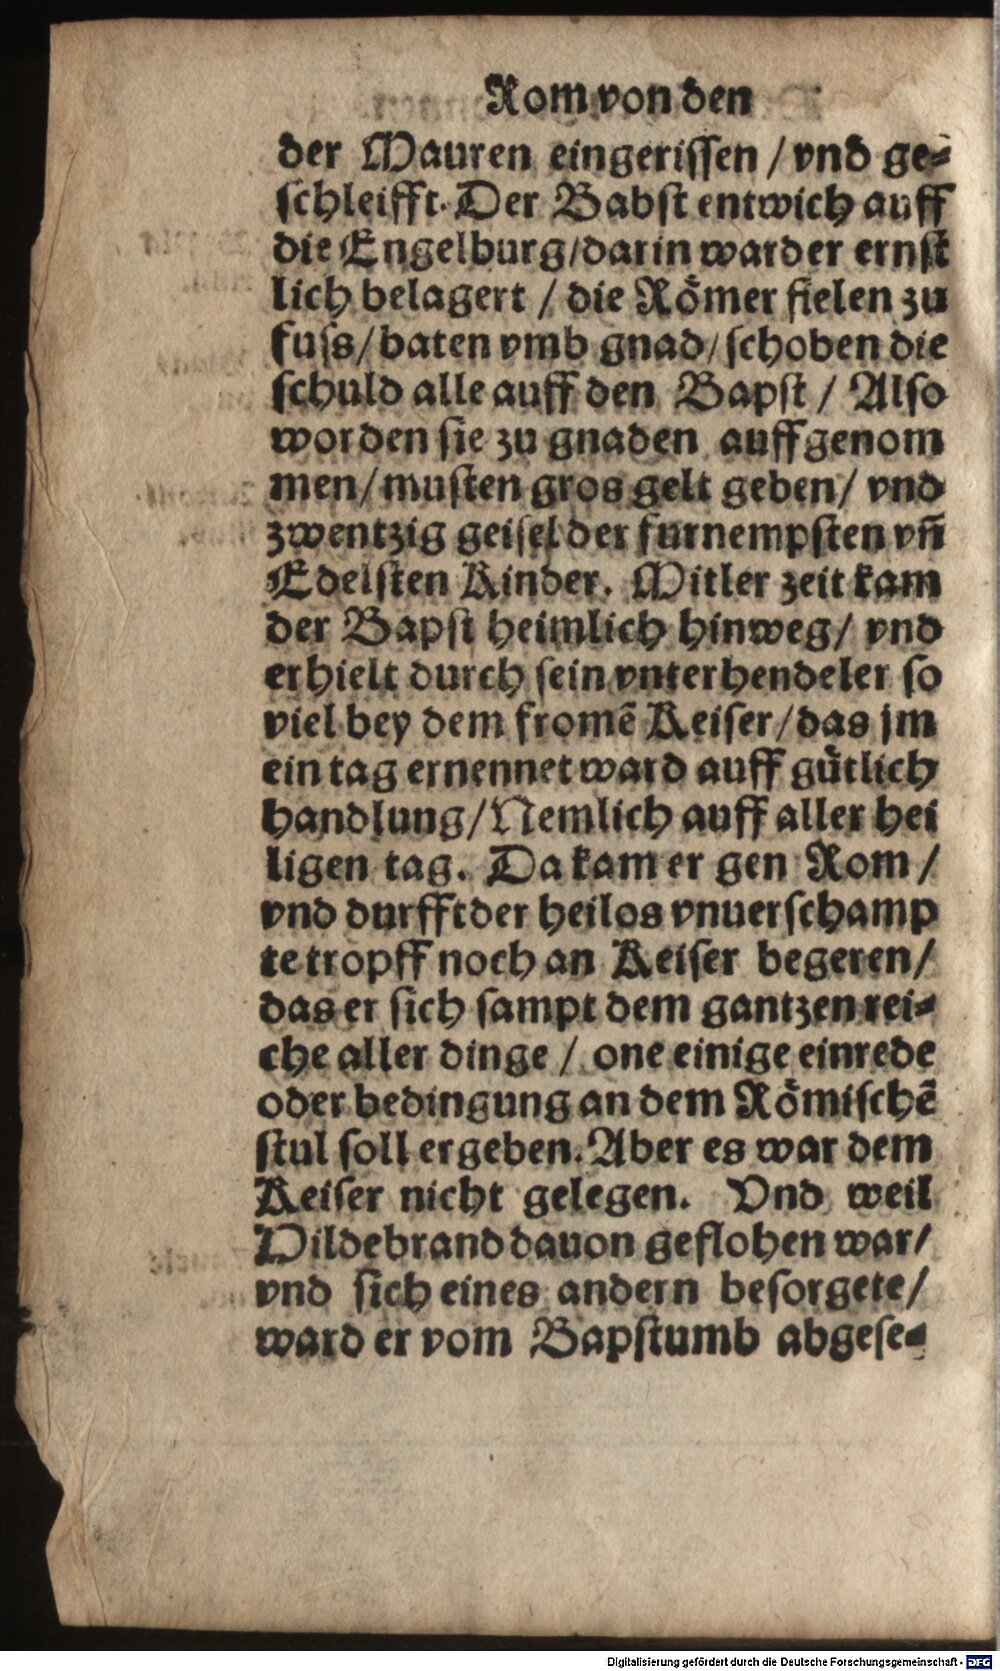 Rom von den
der Mauren eingerissen / vnd ge-
schleifft. Der Babst entwich auff
die Engelburg / darin ward er ernst
lich belagert / die Römer fielen zu
fuss / baten vmb gnad / schoben die
schuld alle auff den Bapst / Also
worden sie zu gnaden auffgenom
men / musten gros gelt geben / vnd
zwentzig geisel der furnempsten vñ
Edelsten Kinder. Mitler zeit kam
der Bapst heimlich hinweg / vnd
erhielt durch sein vnterhendeler so
viel bey dem fromẽ Keiser / das jm
ein tag ernennet ward auff gütlich
handlung / Nemlich auff aller hei
ligen tag. Da kam er gen Rom /
vnd durfft der heilos vnuerschamp
te tropff noch an Keiser begeren /
das er sich sampt dem gantzen rei-
che aller dinge / one einige einrede
oder bedingung an dem Römischẽ
stul soll ergeben. Aber es war dem
Keiser nicht gelegen. Vnd weil
Hildebrand dauon geflohen war /
vnd sich eines andern besorgete /
ward er vom Bapstumb abgese-
Digitalisierung gefördert durch die Deutsche Forschungsgemeinschaft - DFG